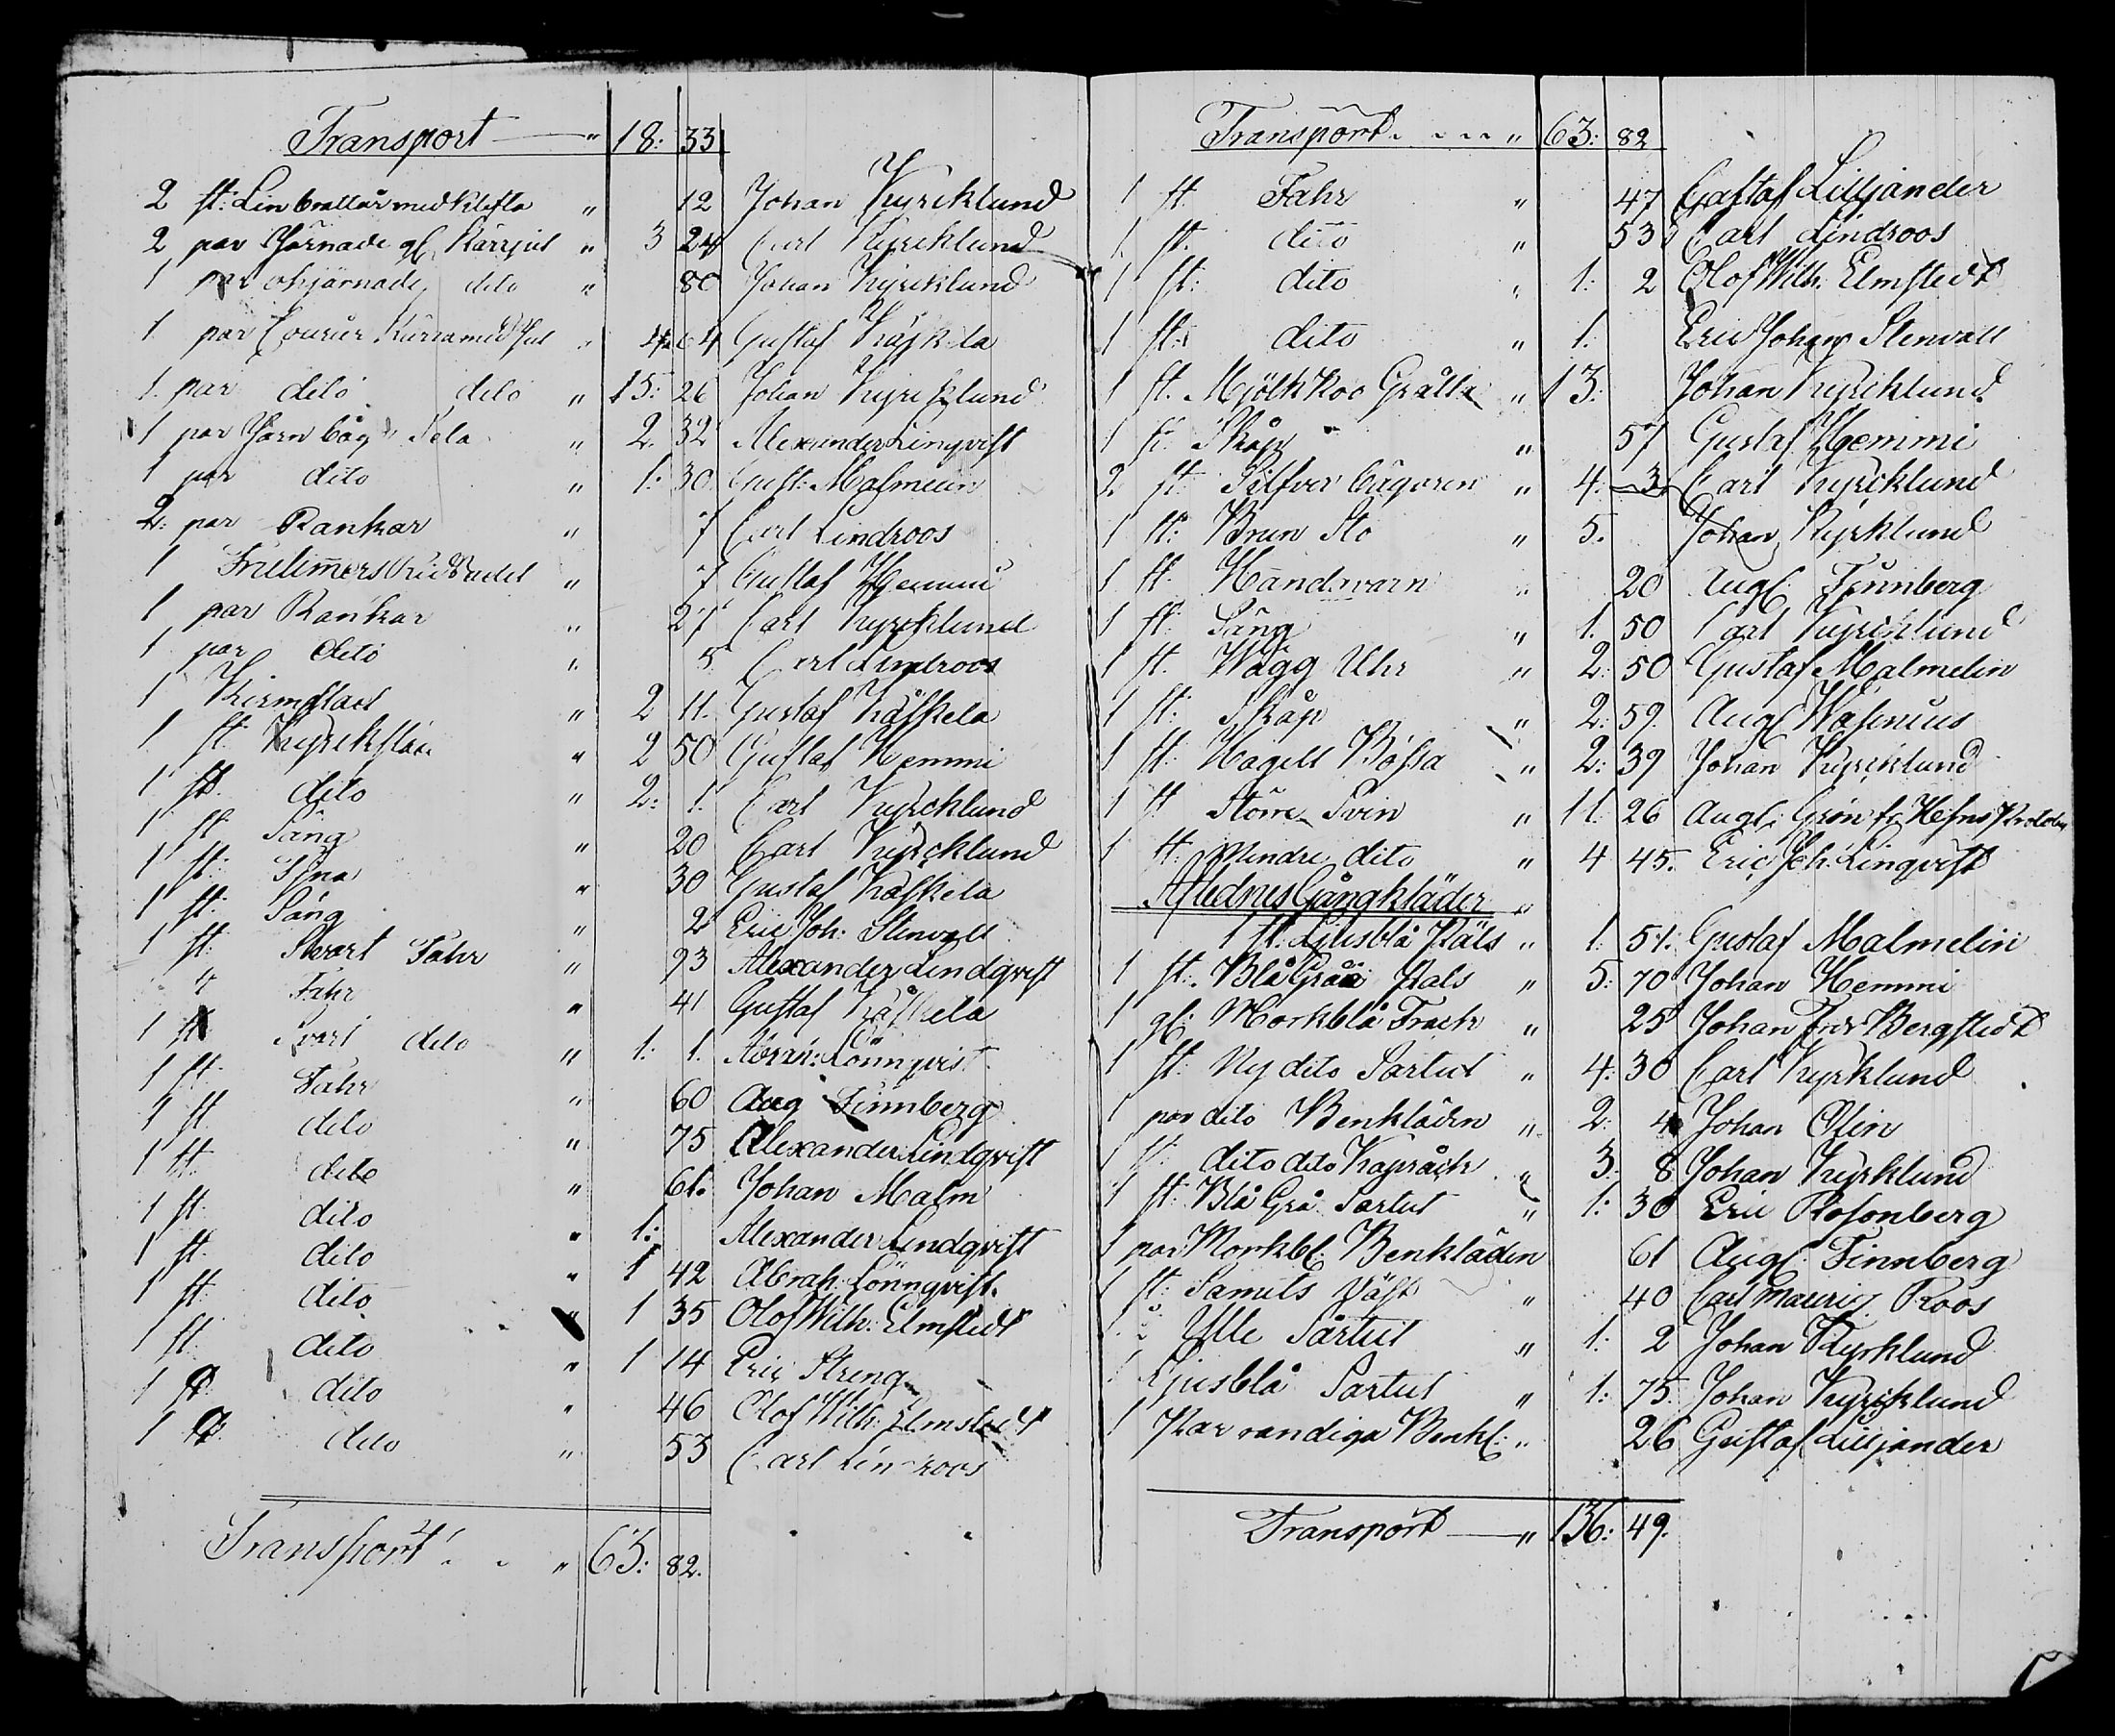 Transport " 18: 33
2 st: Linbrattor med Klifta " 12 Johan Kyrcklund
2 par Järnade gl. Kärrjul " 3 24 Carl Kyrcklund
1 par ohjärnade dito " 80 Johan Kyrcklund
1 par Courier Kärra med Jul " 4 64 Gustaf Käskela
1. par dito dito " 15: 26 Johan Kyrcklund
1 par Järn båg Sela " 2. 32 Alexander Linqvist
1 par dito " 1: 30. Gust: Malmelin
2: par Rankar " 7 Carl Lindroos
1 " 7 Gustaf Hemmi
1 par Rankar " 27 Carl Kyrcklund
1 par dito " 5 Carl Lindroos
1 " 2 11. Gustaf Käskela
1 st. " 2 50 Gustaf Hemmi
1 st dito " 2: 1. Carl Kyrcklund
1 st Säng " 20 Carl Kyrcklund
1 st: " 30 Gustaf Käskela
1 st: Säng " 2 Eric Joh: Stenvall
1 st: Svart Fahr " 93 Alexander Lindqvist
Fahr " 41 Gustaf Käskela
1 st Svart dito " 1: 1. Abrah: Lönnqvist
1 st. Fahr " 60 Aug Finnberg
1 st dito " 75 Alexander Lindqvist
1 st: dito " 61. Johan Malm
1 st. dito " 1: Alexander Lindqvist
1 st. dito " 1 42 Abrah: Lönnqvist.
1 st: dito " 1 35 Olof Wilh: Elmstedt
1 st: dito " 1 14 Eric Streng
1 st. dito " 46 Olof Wilh: Elmstedt
1 st. dito " 53 Carl Lindroos
Transport " 63: 82.
Transport " 63: 82
1 st Fahr " 47 Gustaf Lilljander
1 st. dito " 53 Carl Lindroos
1 st: dito " 1: 2 Olof Wilh. Elmstedt
1 st: dito " 1: Eric Johan Stenvall
1 st. Mjölk Koo Grålla " 13: Johan Kyrcklund
1 st Skåp " 57 Gustaf Hemmi
2. st: Silfver bägaren " 4: 3 Carl Kyrcklund
1 st: Brun Sto " 5. Johan Kyrklund
1 st. Handqvarn " 20 Aug. Finnberg
1 st: Säng " 1. 50 Carl Kyrcklund
1 st. Wägg Uhr " 2: 50 Gustaf Malmelin
1 st: Skåp " 2: 59. Aug. Wasenius
1 st: Hagell Bössa " 2: 39 Johan Kyrcklund
1 st Störe Svin " 11. 26 Aug. Grön fr.
1 st: Mindre dito " 4 45. Eric Joh: Linqvist
Aflednes Gångkläder "
1 st: Ljusblå Päls " 1: 51. Gustaf Malmelin
1 st: Blå Grå Päls " 5: 70 Johan Hemmi
1 gl: Morkblå Frack " 25 Johan Fredr Bergstedt
1 st: Ny dito Sartut " 4: 30 Carl Kyrklund
1 par dito Benkläden " 2: 4 Johan Olin
1 st: dito dito Kapråck " 3. 8 Johan Kyrklund
1 st: Blå Grå Sartut " 1: 30 Eric Rosonberg
1 par Morkbl: Benkläden 61 Aug. Finnberg
1 st: Samits Väst " 40 Carl Mauriz Roos
1 " Ylle Sårtut " 1: 2 Johan Kyrklund
1 Ljusblå Sartut " 1: 75. Johan Kyrcklund
1 Par randiga Benkl: " 26 Gustaf Lilljander
Transport " 136: 49.